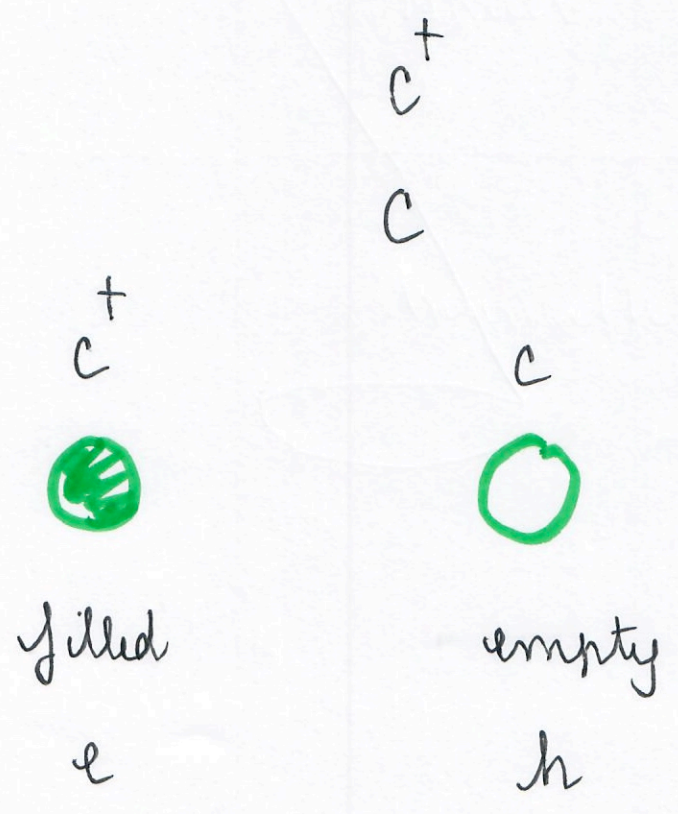 C⁺
C
C⁺ C
filled empty
e h